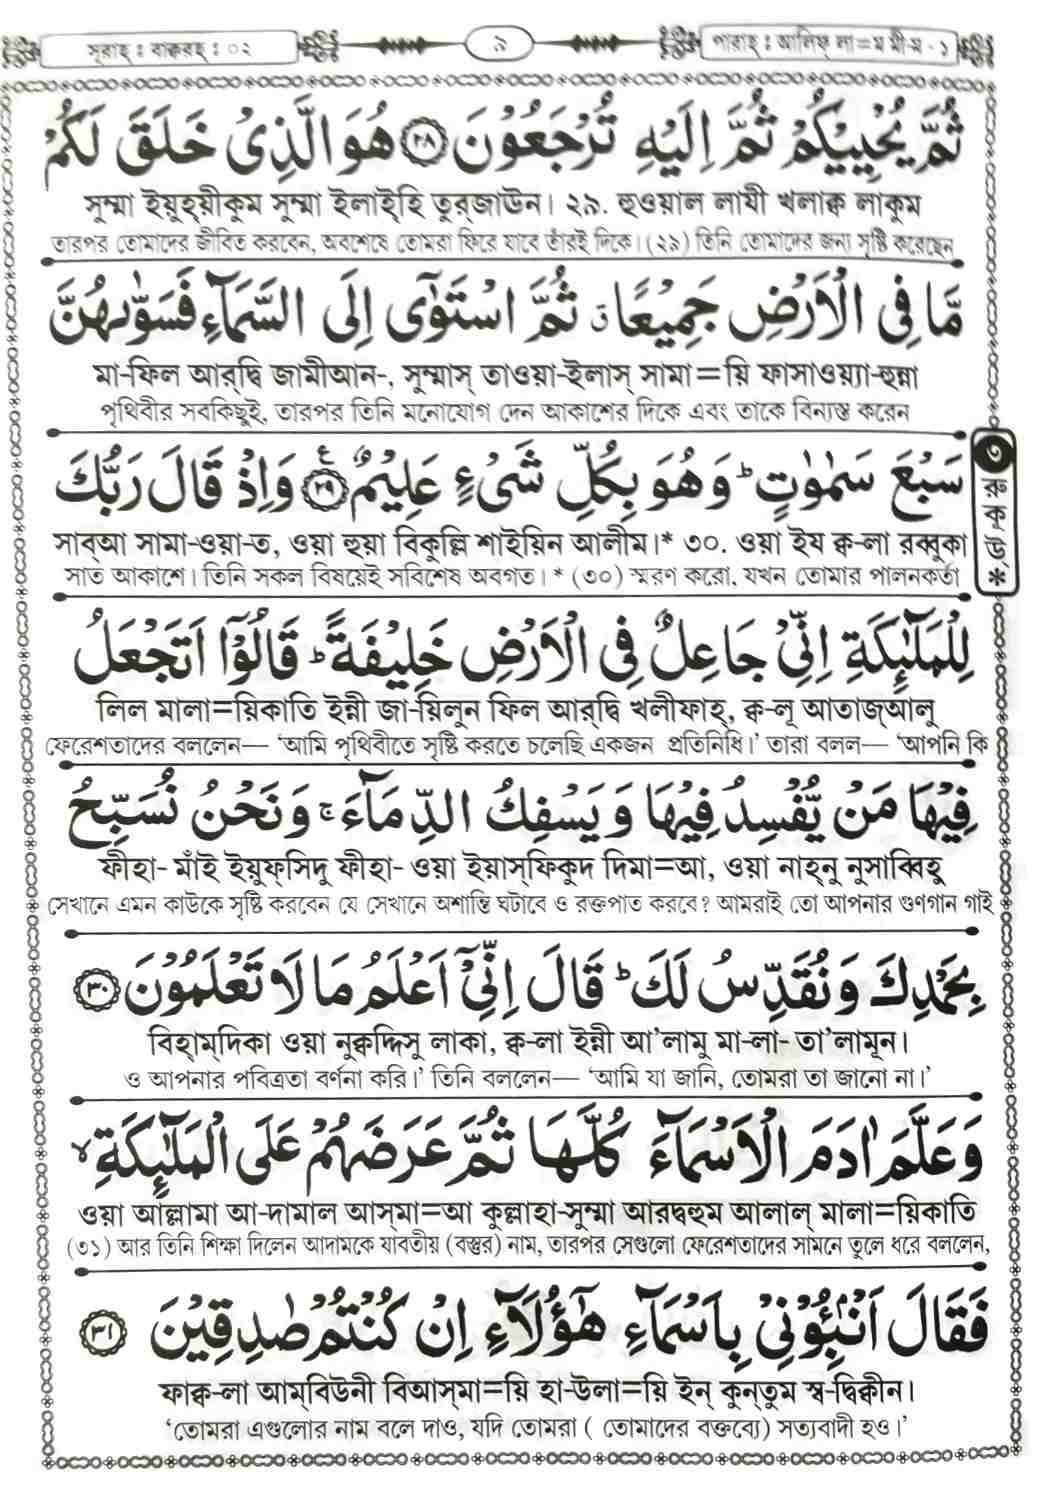 সূরাহ্ : বাক্বরহ্ : ০২
৯
পারাহ্ : আলিফ্ লা=ম মী-ম - ১
ثُمَّ يُحْيِيْكُمْ ثُمَّ اِلَيْهِ تُرْجَعُوْنَ ﴿٢٨﴾ هُوَ الَّذِىْ خَلَقَ لَكُمْ
সুম্মা ইয়ুহ্‌য়ীকুম সুম্মা ইলাইহি তুর্‌জাঊন। ২৯. হুওয়াল লাযী খলাক্ব লাকুম
তারপর তোমাদের জীবিত করবেন, অবশেষে তোমরা ফিরে যাবে তাঁরই দিকে। (২৯) তিনি তোমাদের জন্য সৃষ্টি করেছেন
مَّا فِى الْاَرْضِ جَمِيْعًا ۤ ثُمَّ اسْتَوٰٓى اِلَى السَّمَآءِ فَسَوّٰىهُنَّ
মা-ফিল আর্‌দ্বি জামীআন-, সুম্মাস্ তাওয়া-ইলাস্ সামা=য়ি ফাসাওয়্যা-হুন্না
পৃথিবীর সবকিছুই, তারপর তিনি মনোযোগ দেন আকাশের দিকে এবং তাকে বিন্যস্ত করেন
سَبْعَ سَمٰوٰتٍ ؕ وَهُوَ بِكُلِّ شَىْءٍ عَلِيْمٌ ﴿٢٩﴾ ع وَاِذْ قَالَ رَبُّكَ
সাব্‌আ সামা-ওয়া-ত, ওয়া হুয়া বিকুল্লি শাইয়িন আলীম।* ৩০. ওয়া ইয ক্ব-লা রব্বুকা
সাত আকাশে। তিনি সকল বিষয়েই সবিশেষ অবগত। * (৩০) স্মরণ করো, যখন তোমার পালনকর্তা
৩
রুকূউ*
لِلْمَلٰٓئِكَةِ اِنِّىْ جَاعِلٌ فِى الْاَرْضِ خَلِيْفَةً ؕ قَالُوْٓا اَتَجْعَلُ
লিল মালা=য়িকাতি ইন্নী জা-য়িলুন ফিল আর্‌দ্বি খলীফাহ্, ক্ব-লূ আতাজ্‌আলু
ফেরেশতাদের বললেন— ‘আমি পৃথিবীতে সৃষ্টি করতে চলেছি একজন প্রতিনিধি।’ তারা বলল— ‘আপনি কি
فِيْهَا مَنْ يُّفْسِدُ فِيْهَا وَيَسْفِكُ الدِّمَآءَ ۚ وَنَحْنُ نُسَبِّحُ
ফীহা- মাঁই ইয়ুফ্‌সিদু ফীহা- ওয়া ইয়াস্‌ফিকুদ দিমা=আ, ওয়া নাহ্‌নু নুসাব্বিহু
সেখানে এমন কাউকে সৃষ্টি করবেন যে সেখানে অশান্তি ঘটাবে ও রক্তপাত করবে? আমরাই তো আপনার গুণগান গাই
بِحَمْدِكَ وَنُقَدِّسُ لَكَ ؕ قَالَ اِنِّىْٓ اَعْلَمُ مَا لَا تَعْلَمُوْنَ ﴿٣٠﴾
বিহাম্‌দিকা ওয়া নুক্বদ্দিসু লাকা, ক্ব-লা ইন্নী আ’লামু মা-লা- তা’লামূন।
ও আপনার পবিত্রতা বর্ণনা করি।’ তিনি বললেন— ‘আমি যা জানি, তোমরা তা জানো না।’
وَعَلَّمَ اٰدَمَ الْاَسْمَآءَ كُلَّهَا ثُمَّ عَرَضَهُمْ عَلَى الْمَلٰٓئِكَةِ ۙ
ওয়া আল্লামা আ-দামাল আস্‌মা=আ কুল্লাহা-সুম্মা আরদ্বহুম আলাল্ মালা=য়িকাতি
(৩১) আর তিনি শিক্ষা দিলেন আদামকে যাবতীয় (বস্তুর) নাম, তারপর সেগুলো ফেরেশতাদের সামনে তুলে ধরে বললেন,
فَقَالَ اَنْۢبِـُٔوْنِىْ بِاَسْمَآءِ هٰٓؤُلَآءِ اِنْ كُنْتُمْ صٰدِقِيْنَ ﴿٣١﴾
ফাক্ব-লা আম্‌বিউনী বিআস্‌মা=য়ি হা-উলা=য়ি ইন্ কুন্‌তুম স্ব-দ্বিক্বীন।
‘তোমরা এগুলোর নাম বলে দাও, যদি তোমরা ( তোমাদের বক্তব্যে) সত্যবাদী হও।’